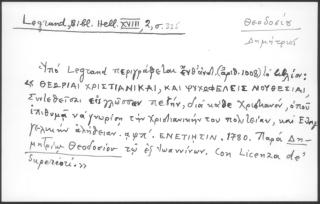 Legrand, Bibl. Hell. XVIII, 2, σ. 225
Θεοδοσίου
Δημήτριος
Ὑπὸ Legrand περιγράφεται ἐνθάνω (ἀριθ. 1008) τὸ βιβλίον:
« ΘΕΩΡΙΑΙ ΧΡΙΣΤΙΑΝΙΚΑΙ, ΚΑΙ ΨΥΧΩΦΕΛΕΙΣ ΝΟΥΘΕΣΙΑΙ,
Συντεθεῖσαι εἰς γλῶσσαν πεζήν, διὰ κάθε Χριστιανόν, ὁποῦ
ἐπιθυμᾷ νὰ γνωρίσῃ τὴν Χριστιανικήν του πολιτείαν, καὶ Εὐαγ-
γελικὴν ἀλήθειαν. αψπ΄. ΕΝΕΤΙΗΣΙΝ. 1780. Παρὰ Δη-
μητρίῳ Θεοδοσίου τῷ ἐξ Ἰωαννίνων. Con Licenza de'
Superiori.»